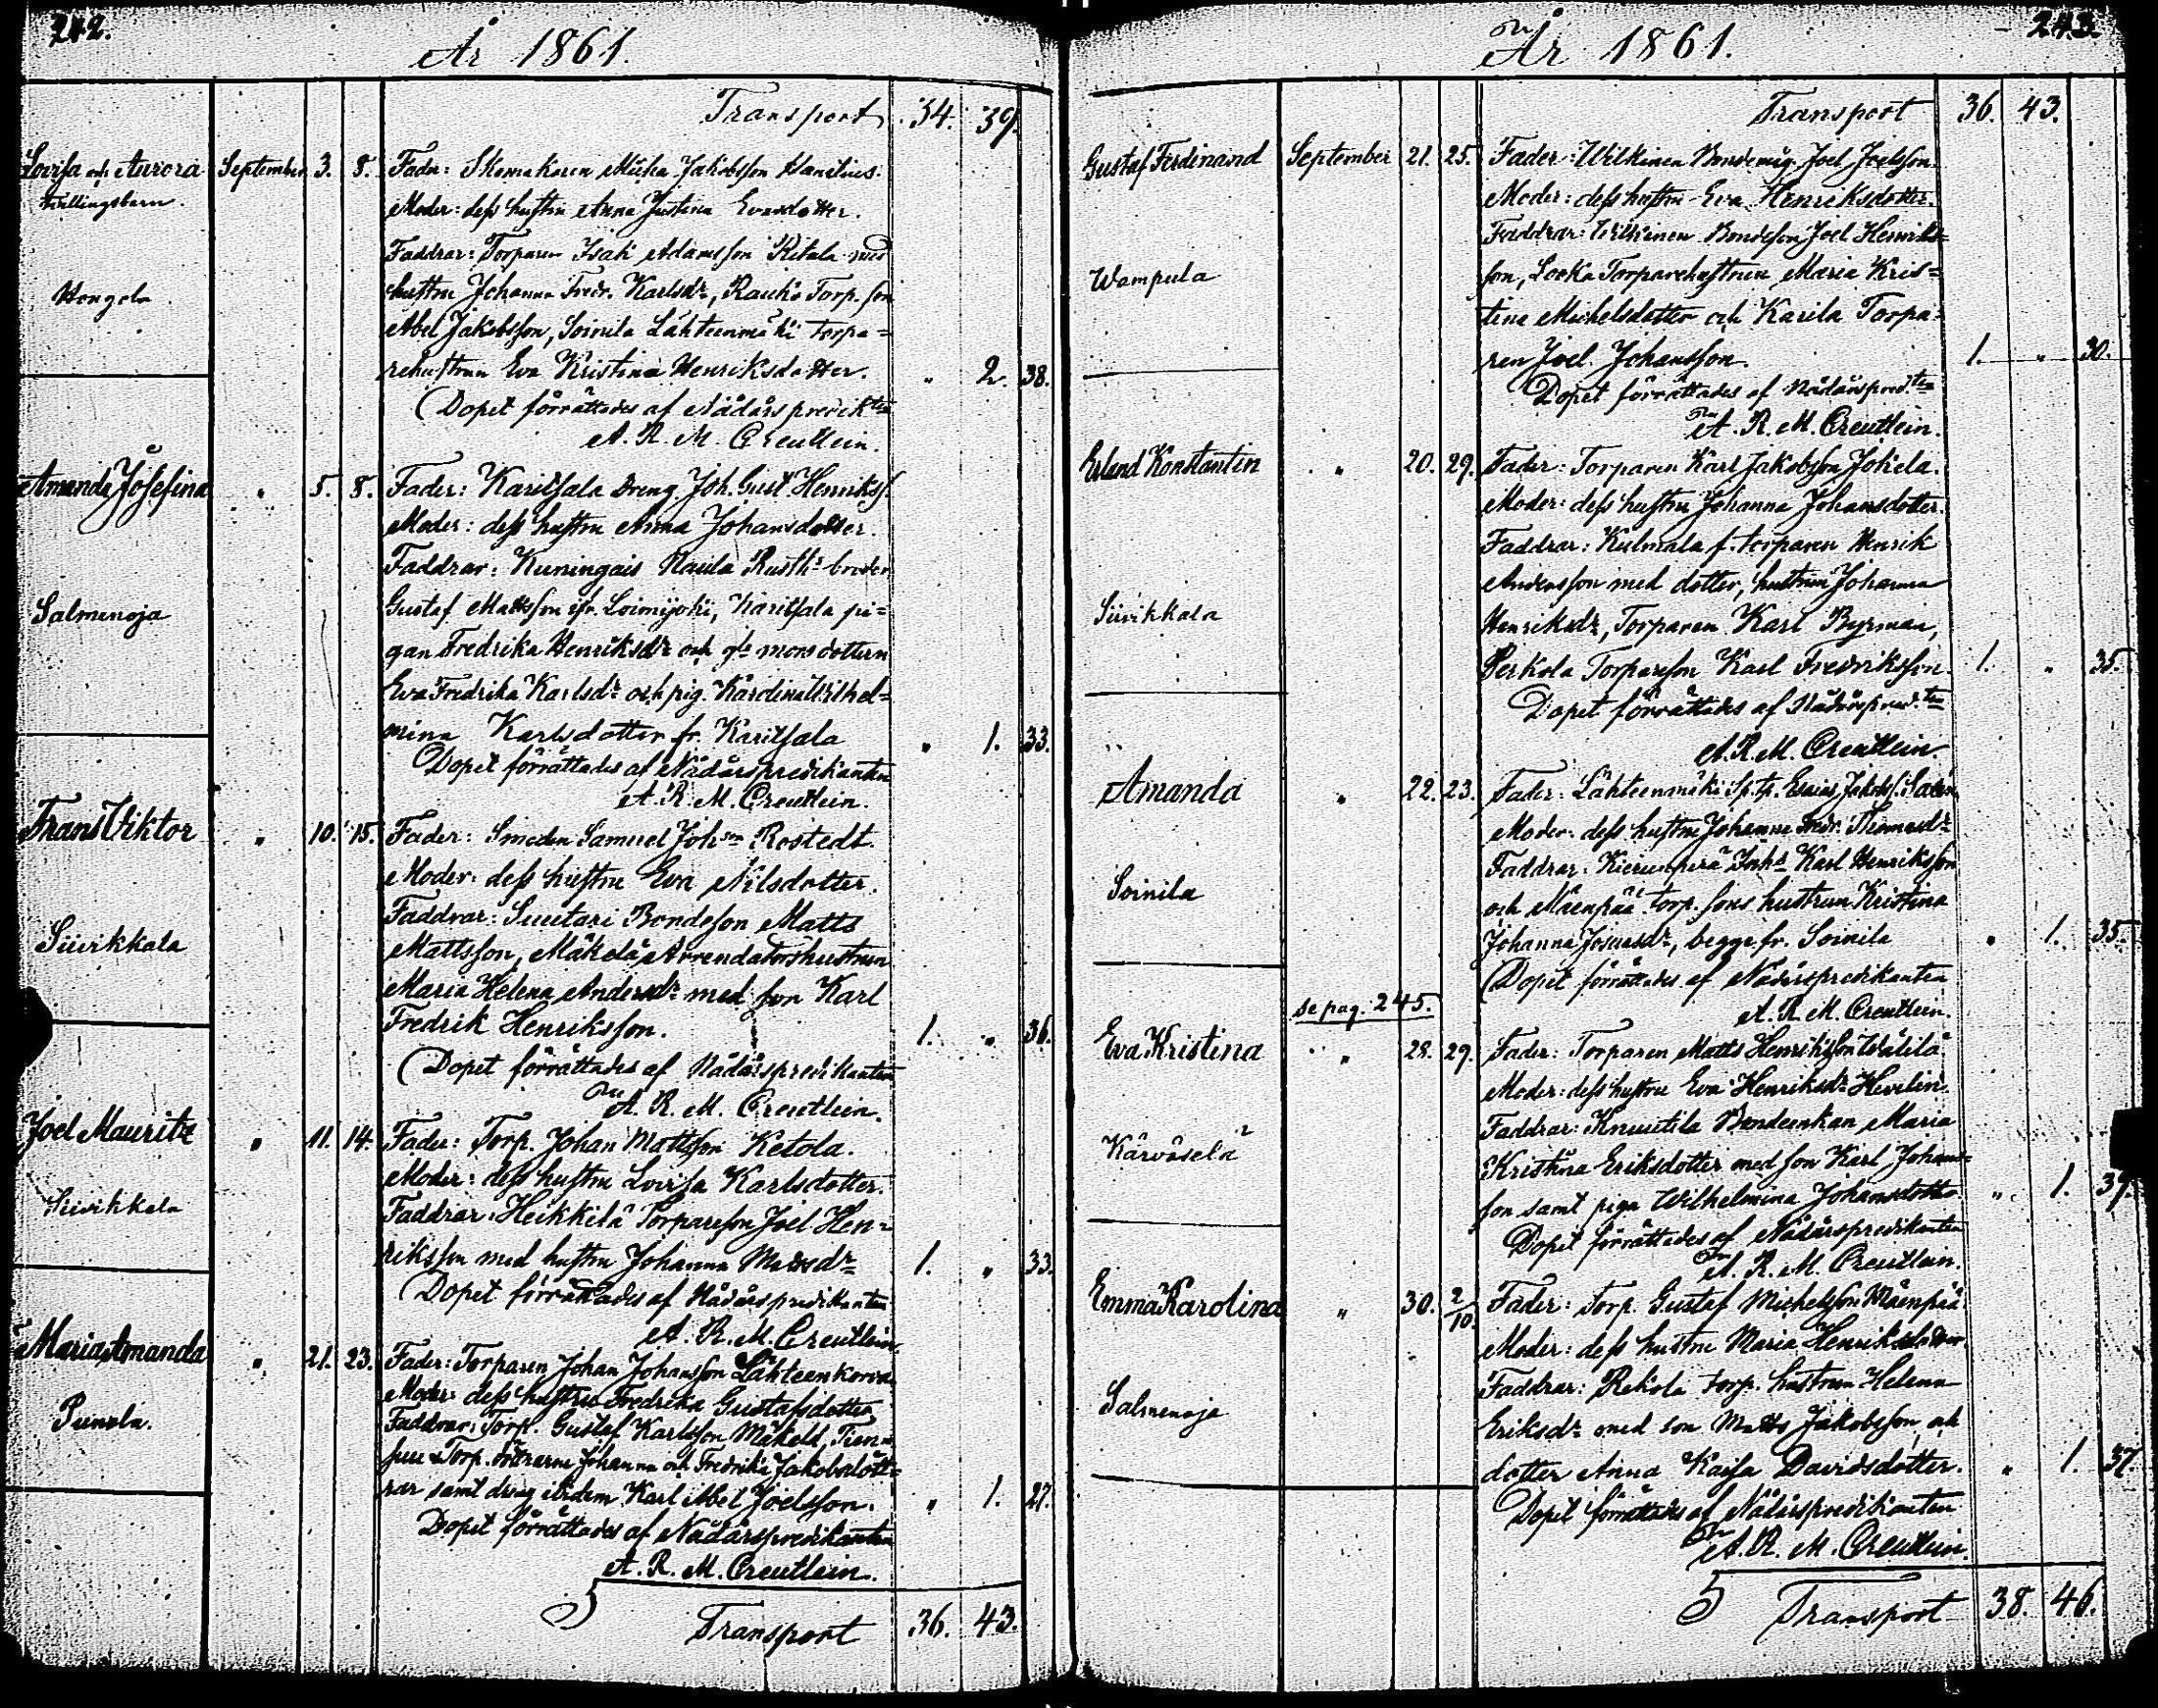 242.
År 1861.
Transport 34. 39.
Lovisa och Aurora September 3. 8. Fader: Skomakaren Jakobsson
tvillingsbarn. Moder: dess hustru Anna Justina Evasdotter.
Faddrar: Torparen Isak Adamsson Ritala med
Hongola hustru Johanna Fredr. Karlsdr, Rauko Torp. son
Abel Jakobsson, Soinila Lähteenmäki Torpa=
rehustrun Eva Kristina Henriksdotter. " 2. 38.
(Dopet förrättades af Nådårspredikten
A. R. M. Creutlein.
Amanda Josefina " 5. 8. Fader: Karitsala Dreng Joh. Gust. Henrikss.
Moder: dess hustru Anna Johansdotter.
Faddrar: Kuningais Naula Rusth. broder
Salmenoja Gustaf Mattsson fr. Loimijoki, Karitsala pi=
gan Fredrika Henriksdr och morsdottern
Eva Fredrika Karlsdr och pig. Karolina Wilhel=
mina Karlsdotter fr. Karitsala " 1. 33.
Dopet förrättades af Nådårspredikanten
A. R. M. Creutlein.
Frans Viktor " 10. 15. Fader: Smeden Samuel Johsn Rostedt.
Moder: dess hustru Eva Nilsdotter.
Faddrar: Suutari Bondeson Matts
Siivikkala Mattsson, Mäkelä Arrendatorshustrun
Maria Helena Andersdr med son Karl
Fredrik Henriksson. 1. " 36.
(Dopet förrättades af Nådårspredikanten
A. R. M. Creutlein.
Joel Mauritz " 11. 14. Fader: Torp. Johan Mattsson Ketola.
Moder: dess hustru Lovisa Karlsdotter.
Siivikkala Faddrar: Heikkilä Torpareson Joel Hen=
riksson med hustru Johanna Mattsdr 1. " 33.
(Dopet förrättades af Nådårspredikanten
A. R. M. Creutlein.
Maria Amanda " 21. 23. Fader: Torparen Johan Johansson Lähteenkorva
Moder: dess hustru Fredrika Gustafsdotter
Punola. Faddrar: Torp. Gustaf Karlsson Mäkelä,
Torp. Johanna och Fredrika Jakobsdött=
rar samt dreng ibidem Karl Abel Joelsson. " 1. 27.
Dopet förrättades af Nådårspredikanten
A. R. M. Creutlein.
Transport 36. 43.
243.
År 1861.
Transport 36. 43.
Gustaf Ferdinand September 21. 25. Fader: Wilkinen Bondemåg Joel Joelsson.
Moder: dess hustru Eva Henriksdotter.
Faddrar: Wilkinen Bondeson Joel Henriks=
Wampula son, Looka Torparehustrun Maria Kris=
tina Michelsdotter och Karila Torpa=
ren Joel Johansson. 1. " 30.
Dopet förrättades af Nådårspred.ten
A. R. M. Creutlein.
Erland Konstantin " 20. 29. Fader: Torparen Karl Jakobsson Jokela.
Moder: dess hustru Johanna Johansdotter.
Faddrar: Kulmala f. torparen Henrik
Andersson med dotter, hustrun Johanna
Siivikkala Henriksdr, Torparen Karl Byman,
Perkola Torpareson Karl Fredriksson. 1. " 35.
Dopet förrättades af Nådårspred.ten
A. R. M. Creutlein.
Amanda " 22. 23. Fader: Lähteenmäki Jakobs.
Moder: dess hustru Johanna Fredr. Thomasdr
Faddrar: Karl Henriksson
Soinila och Mäenpää torp. sons hustrun Kristina
Johanna Josuasdr, begge fr. Soinila " 1. 35.
(Dopet förrättades af Nådårspredikanten
A. R. M. Creutlein.
se pag. 245.
Eva Kristina " 28. 29. Fader: Torparen Matts Henriksson Wälilä.
Moder: dess hustru Eva Henriksdr Hevelin.
Faddrar: Knuutila Bondeenkan Maria
Kärväselä Kristina Eriksdotter med son Karl Johans=
son samt piga Wilhelmina Johansdotter. " 1. 37.
Dopet förrättades af Nådårspredikanten
A. R. M. Creutlein.
Emma Karolina " 30. 2/10. Fader: Torp. Gustaf Michelsson Mäenpää.
Moder: dess hustru Maria Henriksdotter.
Faddrar: Rekola torp. hustrun Helena
Salmenoja Eriksdr med son Matts Jakobsson, och
dotter Anna Kaisa Davidsdotter. " 1. 37.
Dopet förrättades af Nådårspredikanten
A. R. M. Creutlein.
Transport 38. 46.